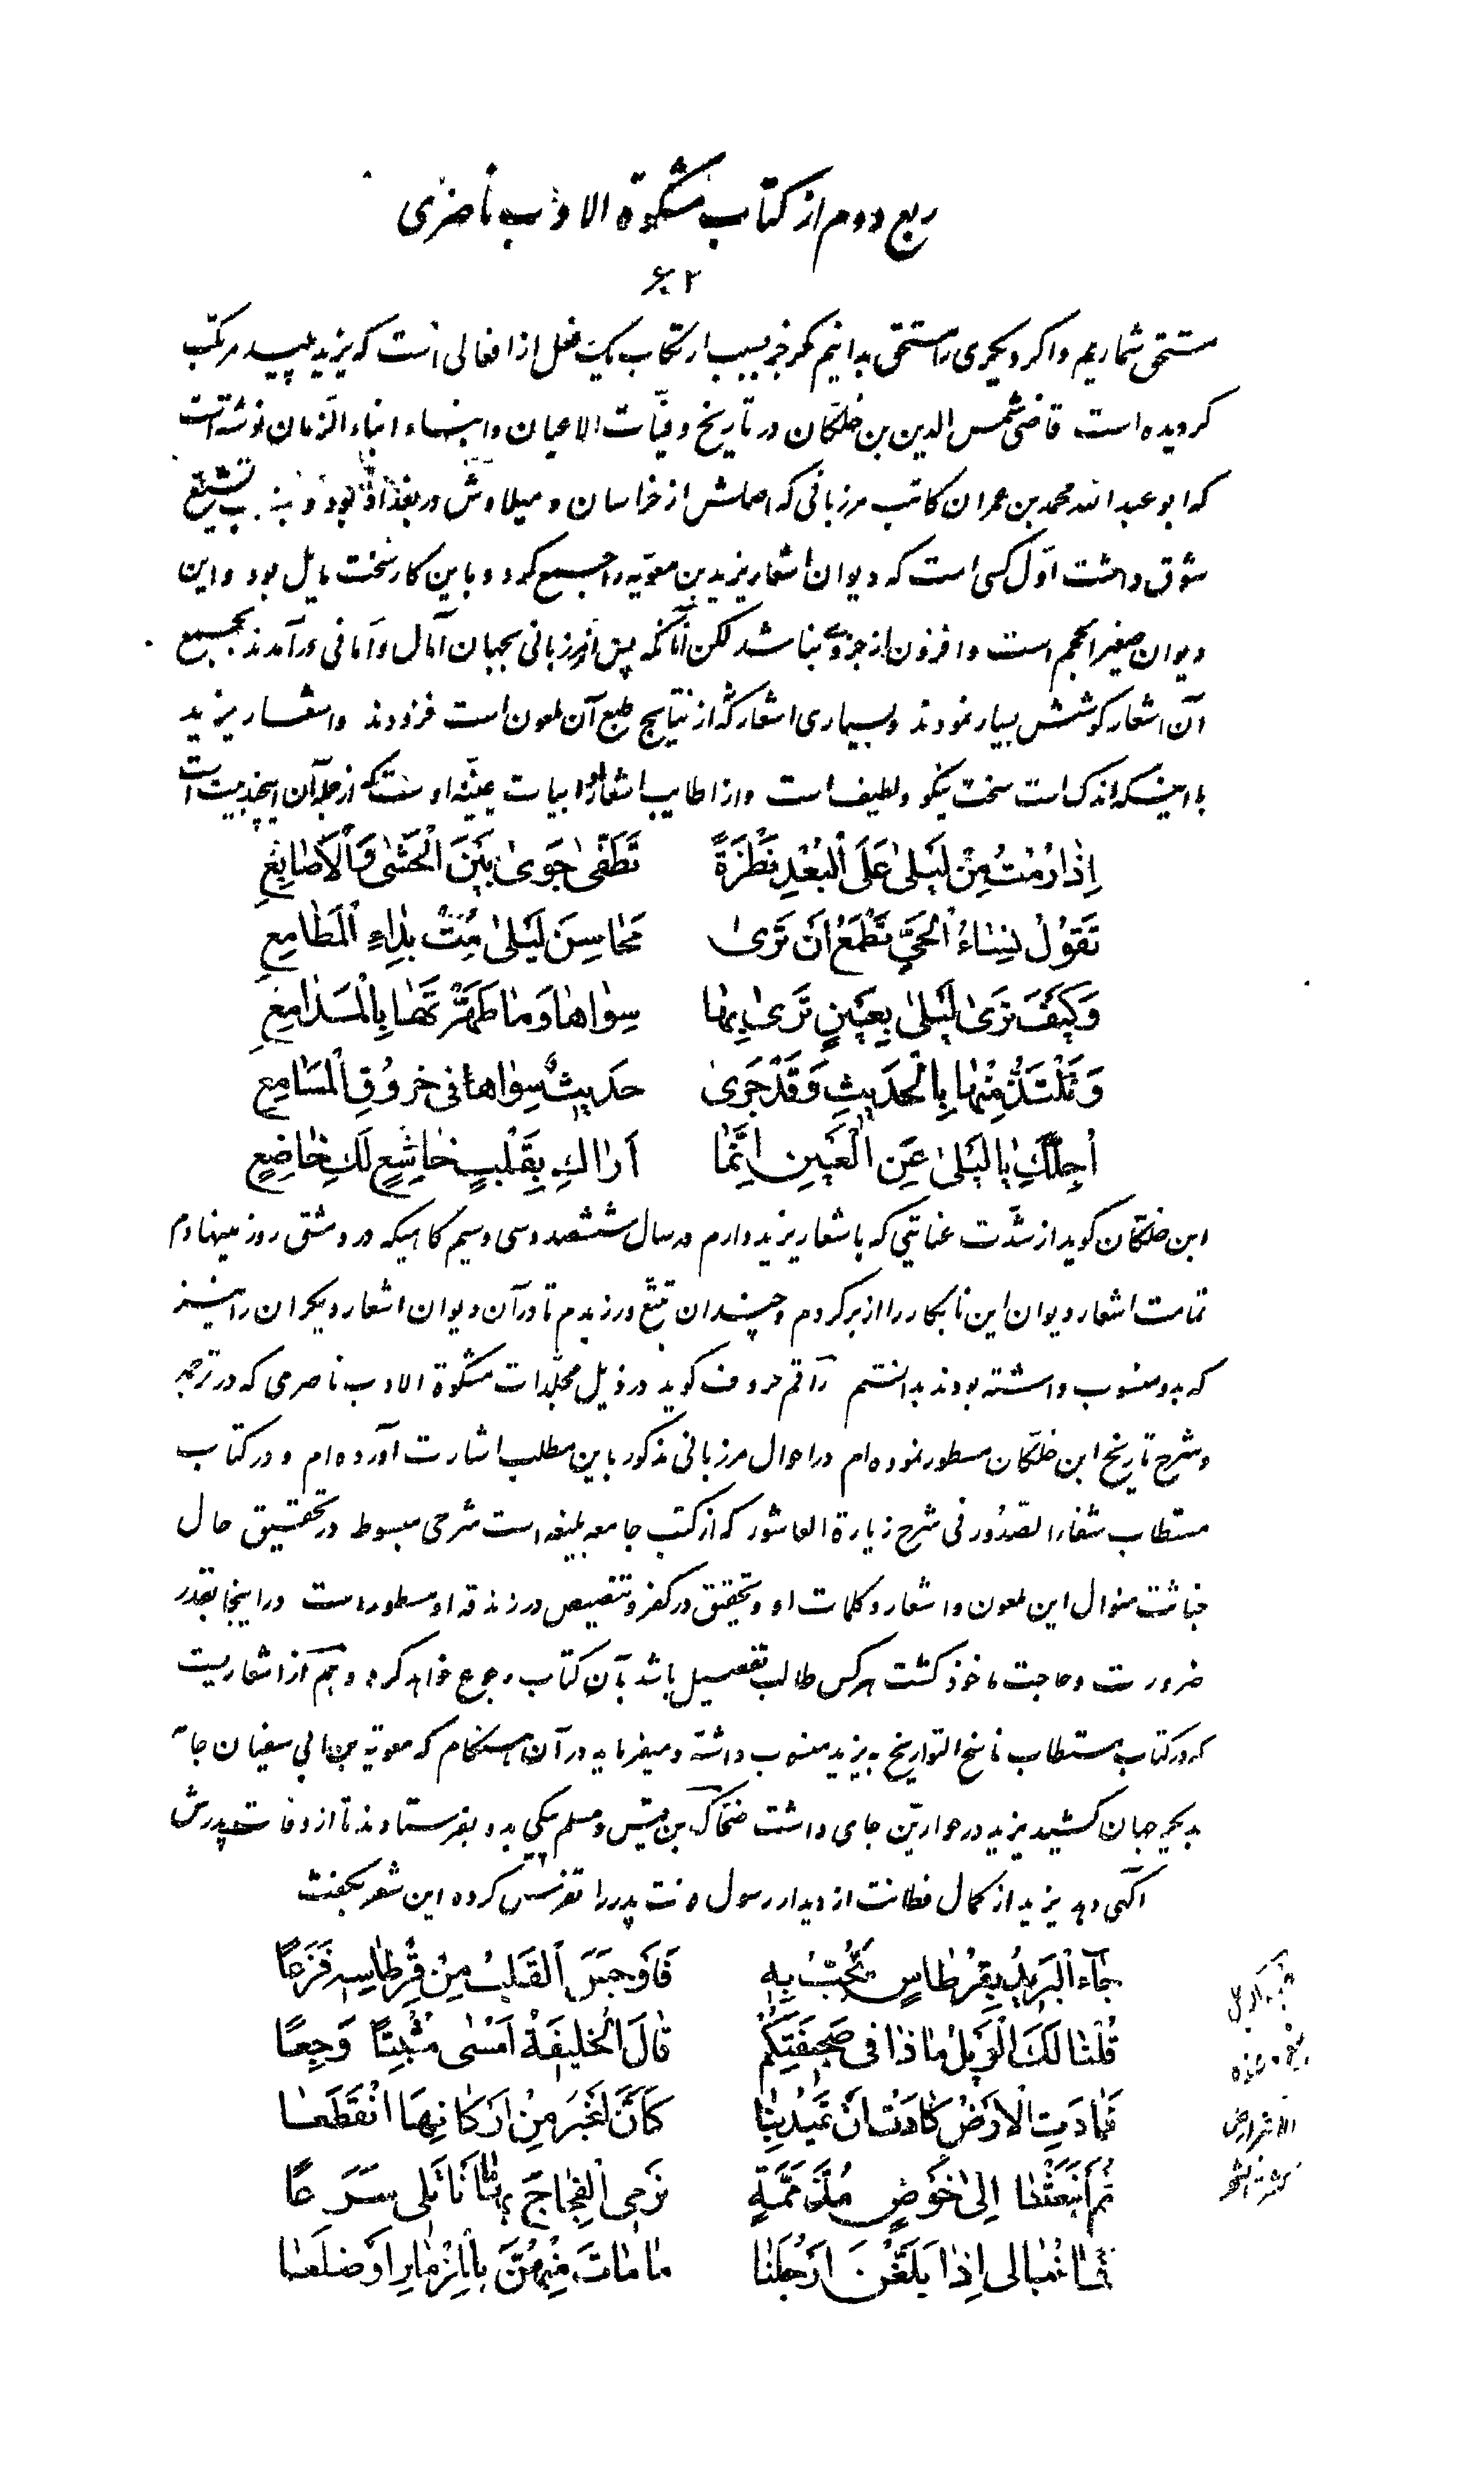 ربع دوم از کتاب مشکوة الادب ناصری
۶۲
مستحق شماریم و اگر دیگری را مستحق بدانیم مگر جز بسبب ارتکاب یک فعل از افعالی است که یزید پلید مرتکب
گردیده است قاضی شمس الدین بن خلکان در تاریخ وفیّات الاعیان و انباء ابناء الزمان نوشته است
که ابو عبد الله محمد بن عمران کاتب مرزبانی که اصلش از خراسان و میلادش در بغداد بود و بمذهب تشیّع
شوق داشت اوّل کسی است که دیوان اشعار یزید بن معویّه را جمع کرد و باین کار سخت مایل بود و این
دیوان صغیر الحجم است و افزون از سه جزو نباشد لکن آنانکه پس از مرزبانی بجهان آمال و امانی درآمدند بجمع
آن اشعار کوشش بسیار نمودند و بسیاری اشعار که نه از نتایج طبع آن ملعون است فزودند و اشعار یزید
با اینکه اندک است سخت نیکو و لطیف است و از اطایب اشعارش ابیات عینیّه اوست که از جمله آن اینچند بیت است
اِذا رُمْتُ مِنْ لَیْلیٰ عَلَی الْبُعْدِ نَظْرَةً تُطَفّیٰ جَویٰ بَیْنَ الْحَشیٰ وَالْاَضالِعِ
تَقوُلُ نِساءُ الْحَیِّ تَطْمَعُ اَنْ تَریٰ مَحاسِنَ لَیْلیٰ مُتْ بِداءِ الْمَطامِعِ
وَکَیْفَ تَریٰ لَیْلیٰ بِعَیْنٍ تَریٰ بِها سِواها وَما طَهَّرْتَها بِالْمَدامِعِ
وَتَلْتَذُّ مِنْها بِالْحَدیثِ وَقَدْ جَریٰ حَدیثُ سِواها فی خُروُقِ الْمَسامِعِ
اُجِلُّکِ یا لَیْلیٰ عَنِ الْعَیْنِ اِنَّما اَراكِ بِقَلْبٍ خاشِعٍ لَكِ خاضِعٍ
ابن خلکان گوید از شدّت عنایتی که باشعار یزید دارم در سال ششصد و سی و سیم گاهیکه در دمشق روز مینهادم
تمامت اشعار دیوان این نابکار را از بر کردم و چندان تتبّع ورزیدم تا در آن دیوان اشعار دیگران را نیز
که بدو منسوب داشته بودند بدانستم راقم حروف گوید در ذیل مجلّدات مشکوة الادب ناصری که در ترجمه
و شرح تاریخ ابن خلکان مسطور نموده ام در احوال مرزبانی مذکور باین مطلب اشارت آورده ام و در کتاب
مستطاب شفاء الصّدور فی شرح زیارة العاشور که از کتب جامعه بلیغه است شرحی مبسوط در تحقیق حال
خباثت منوال این ملعون و اشعار و کلمات او و تحقیق در کفر و تنصیص در زندقه او مسطور است در اینجا بقدر
ضرورت و حاجت ماخوذ گشت هر کس طالب تفصیل باشد بآن کتاب رجوع خواهد کرد و هم از اشعاریست
که در کتاب مستطاب ناسخ التواریخ به یزید منسوب داشته و میفرماید در آن هنگام که معویّة بن ابی سفیان جامه
بدیگر جهان کشید یزید در حوارین جای داشت ضحّاک بن قیس و مسلم پیکی بدو بفرستادند تا از وفات پدرش
آگهی دهد یزید از کمال فطانت از دیدار رسول فوت پدر را تفرّس کرده این شعر بگفت
جاءَ الْبَریدُ بِقِرْطاسٍ یَخُبُّ بِهِ فَاَوْجَسَ الْقَلْبُ مِنْ قِرْطاسِهِ فَزَعًا
قُلْنا لَكَ الْوَیْلُ ماذا فی صَحیفَتِکُمْ قالَ الْخَلیفَةُ اَمْسیٰ مُثْبِتًا وَجِعًا
فَمادَتِ الْاَرْضُ کادَتْ اَنْ تَمیدَ بِنا کَاَنَّ اَغْبَرَ مِنْ اَرْکانِهَا انْقَطَعا
ثُمَّ انْبَعَثْنا اِلیٰ خُوْضٍ مُذَمَّمَةٍ نَرْمِی الْفِجاجَ بِنا نَاتَلی سَرَعًا
فَما نُبالی اِذا بَلَّغْنَ اَرْجُلَنا ما ماتَ مِنْهُنَّ بِالْمِرْمارِ اَوْضَلَعا